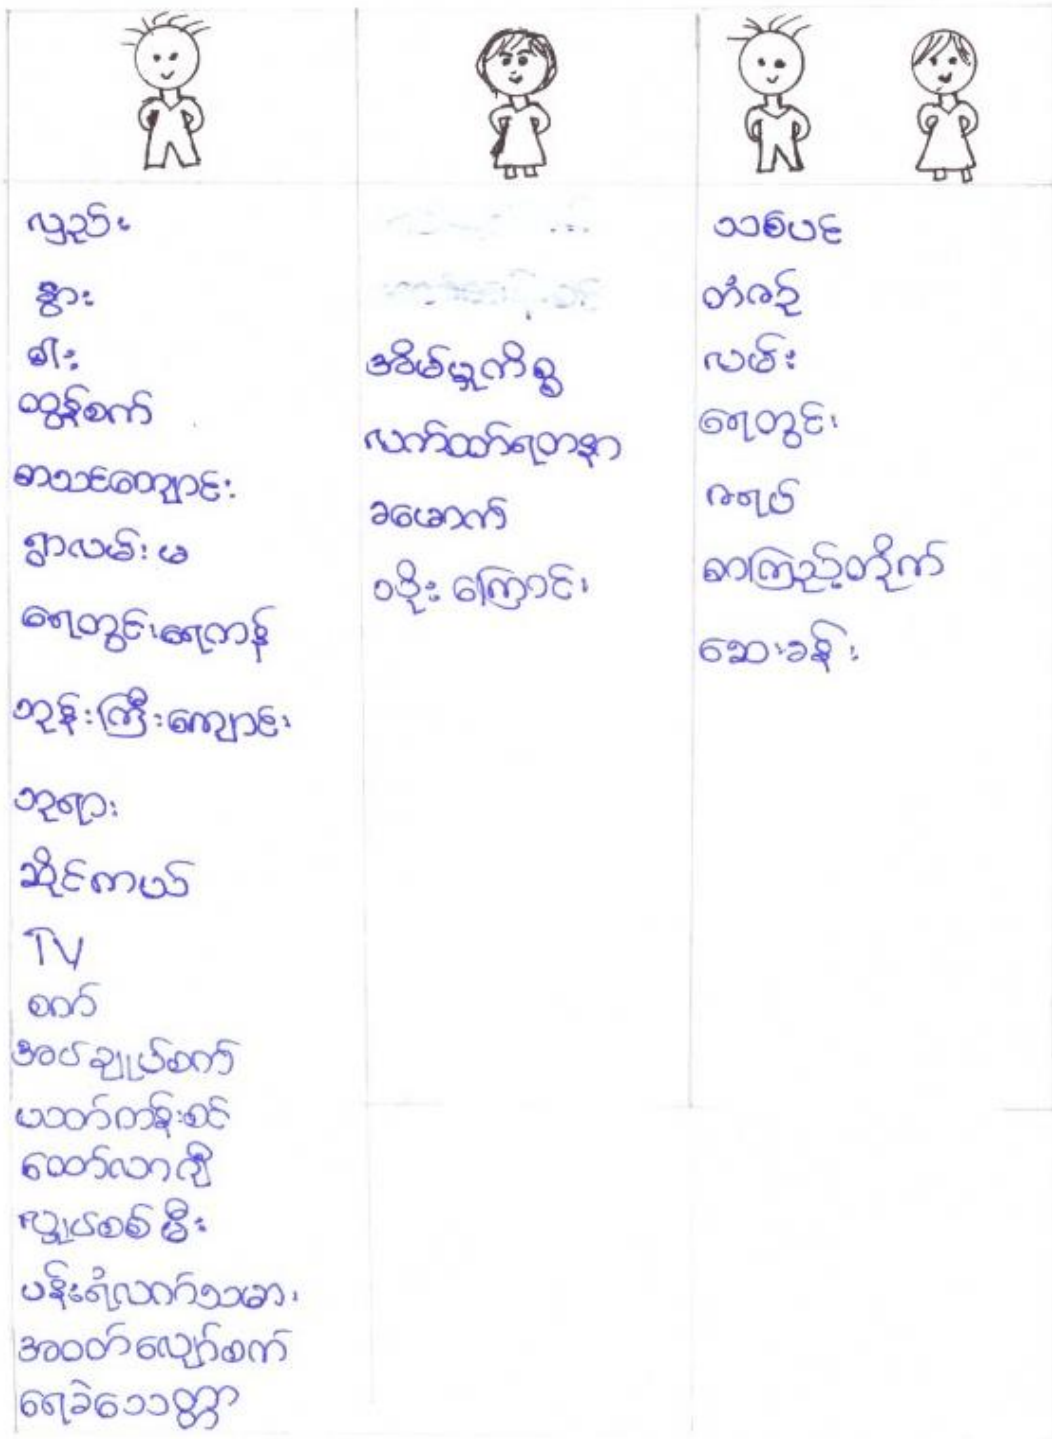 လှည်း
နွား
ဓါး
ထွန်စက်
စာသင်ကျောင်း
ရွာလမ်းမ
ရေတွင်းရေကန်
ဘုန်းကြီးကျောင်း
ဘုရား
ဆိုင်ကယ်
TV
စက်
အပ်ချုပ်စက်
ယတ်ကန်းစင်
ထော်လာဂျီ
လျှပ်စစ်မီး
ပန်းရံလက်သမား
အဝတ်လျှော်စက်
ရေခဲသေတ္တာ
အိမ်မှုကိစ္စ
လက်ထတ်ရတနာ
ခမောက်
သစ်ပင်
တံစဉ်
လမ်း
ရေတွင်း
ဇရပ်
စာကြည့်တိုက်
ဆေးခန်း